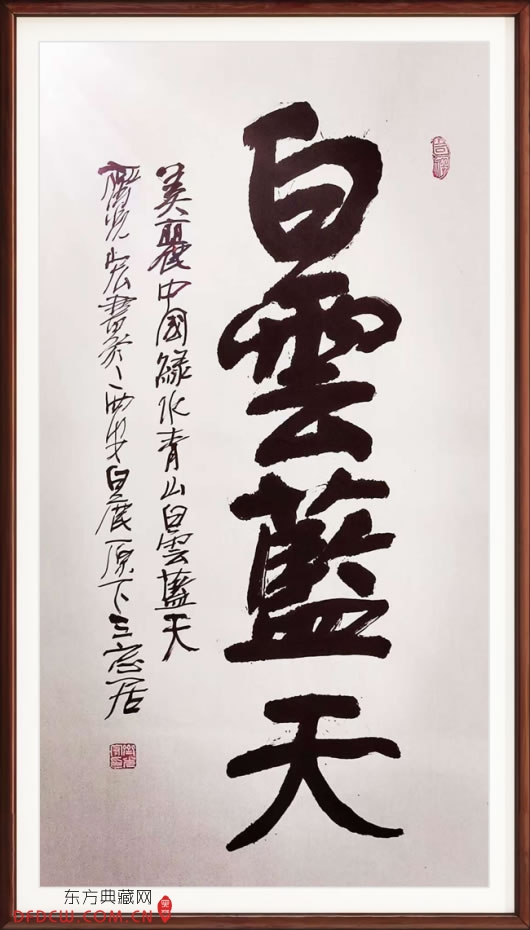 白雲藍天
美麗中國綠水青山白雲藍天
書於西安白鹿原下三宜居
东方典藏网
DFDCW.COM.CN